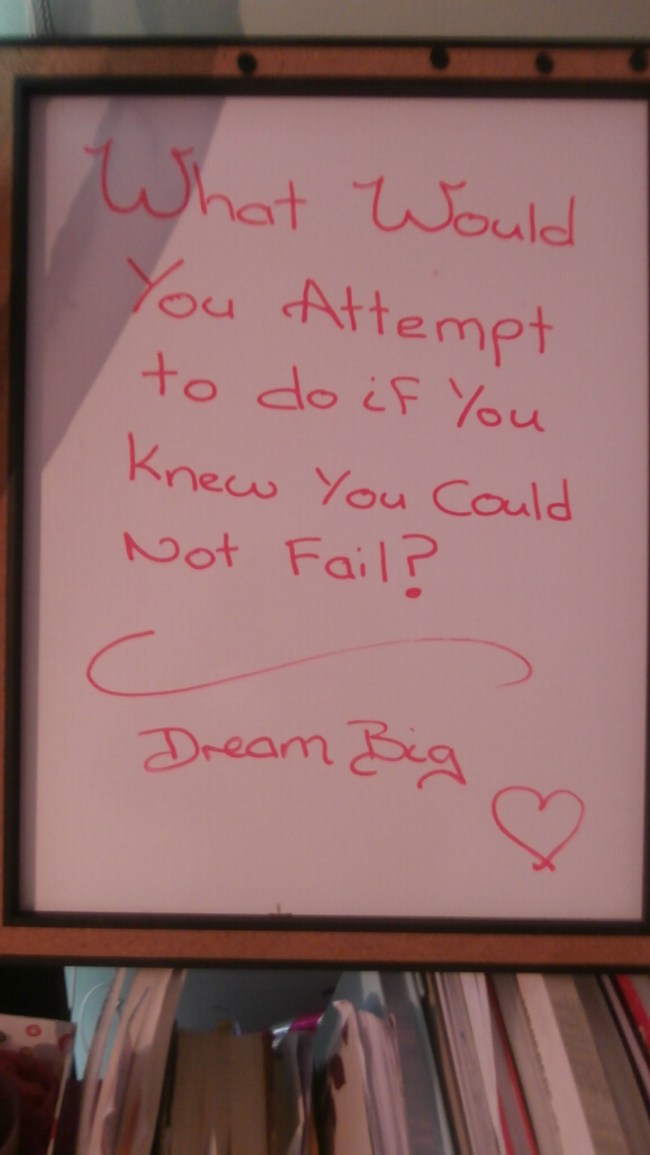 What Would
You Attempt
to do if You
Knew You Could
Not Fail?
Dream Big